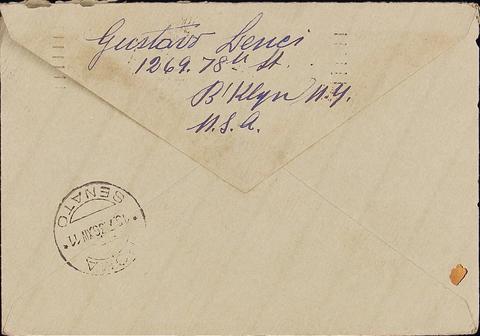 Gustavo Denci
1269. 78th St.
B'klyn N.Y.
U.S.A.
SENATO